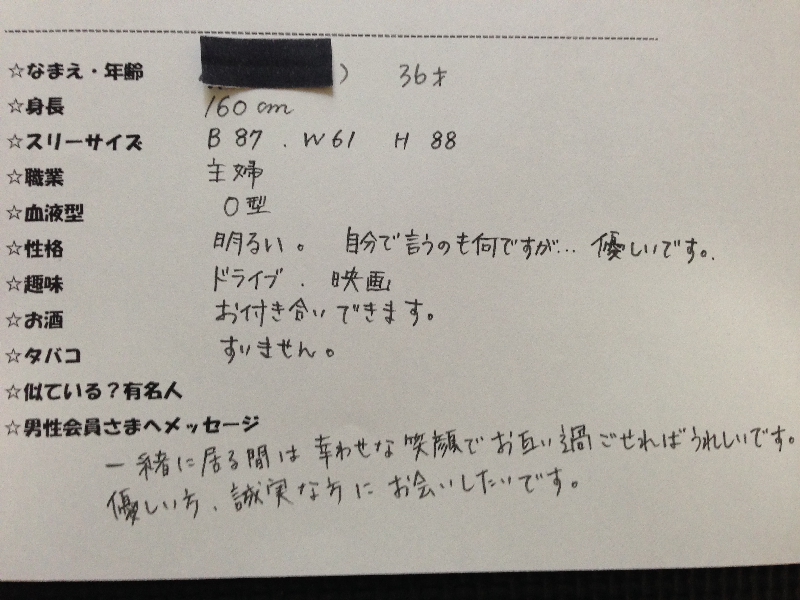 ☆なまえ・年齢 ) 36才
☆身長 160cm
☆スリーサイズ B 87 . W61 H 88
☆職業 主婦
☆血液型 O型
☆性格 明るい。 自分で言うのも何ですが… 優しいです。
☆趣味 ドライブ . 映画
☆お酒 お付き合いできます。
☆タバコ すいません。
☆似ている？有名人
☆男性会員さまへメッセージ
一緒に居る間は幸わせな笑顔でお互い過ごせればうれしいです。
優しい方、誠実な方にお会いしたいです。